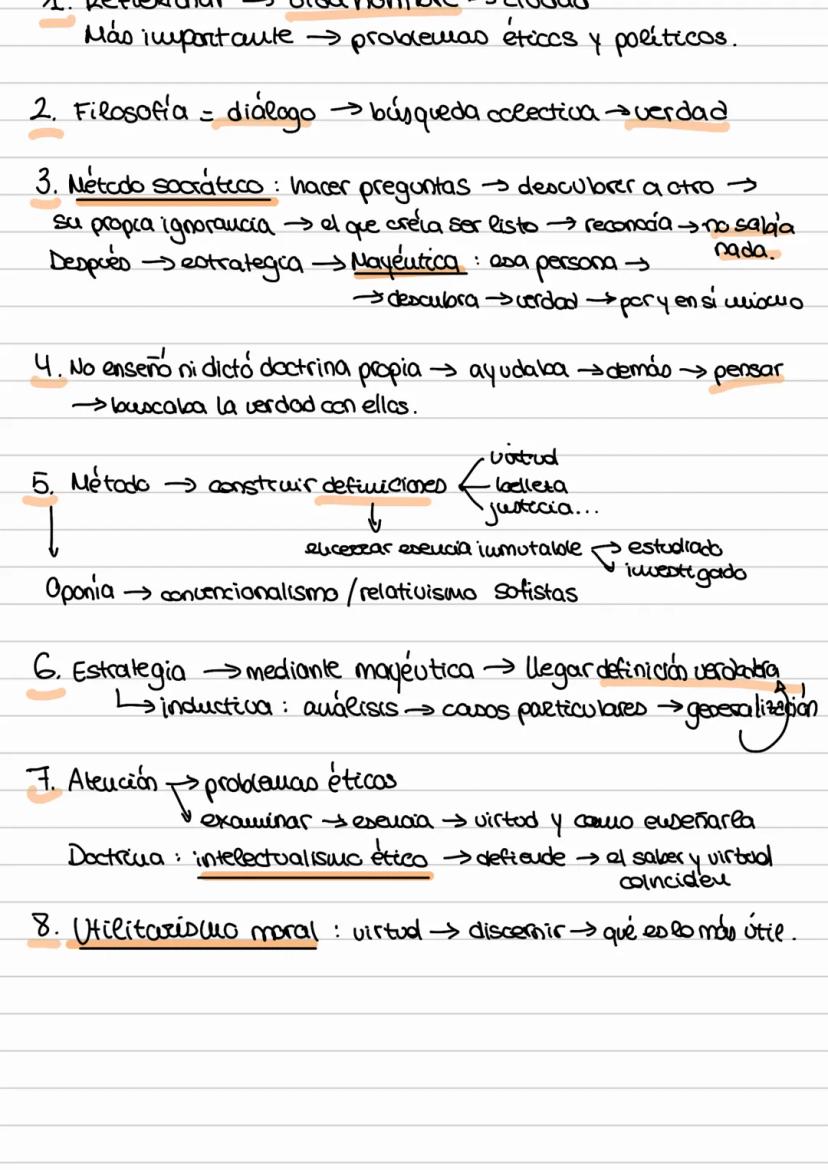 1. Reflexionar → vida hombre - ciudad
Más importante → problemas éticos y políticos.
2. Filosofía = diálogo → búsqueda colectiva → verdad
3. Método socrático : hacer preguntas → descubrir a otro →
su propia ignorancia → el que creía ser listo → reconocía → no sabía
nada.
Después → estrategia → Mayéutica : esa persona →
→ descubra → verdad → por y en sí mismo
4. No enseñó ni dictó doctrina propia → ayudaba → demás → pensar
→ buscaba la verdad con ellos.
5. Método → construir definiciones
virtud
belleza
justicia...
encerrar esencia inmutable → estudiado
investigado
Oponía → convencionalismo / relativismo sofistas
6. Estrategia → mediante mayéutica → llegar definición verdadera
↳ inductiva : análisis → casos particulares → generalización
7. Atención → problemas éticos
examinar → esencia → virtud y como enseñarla
Doctrina : intelectualismo ético → defiende → el saber y virtud
coinciden
8. Utilitarismo moral : virtud → discernir → qué es lo más útil.